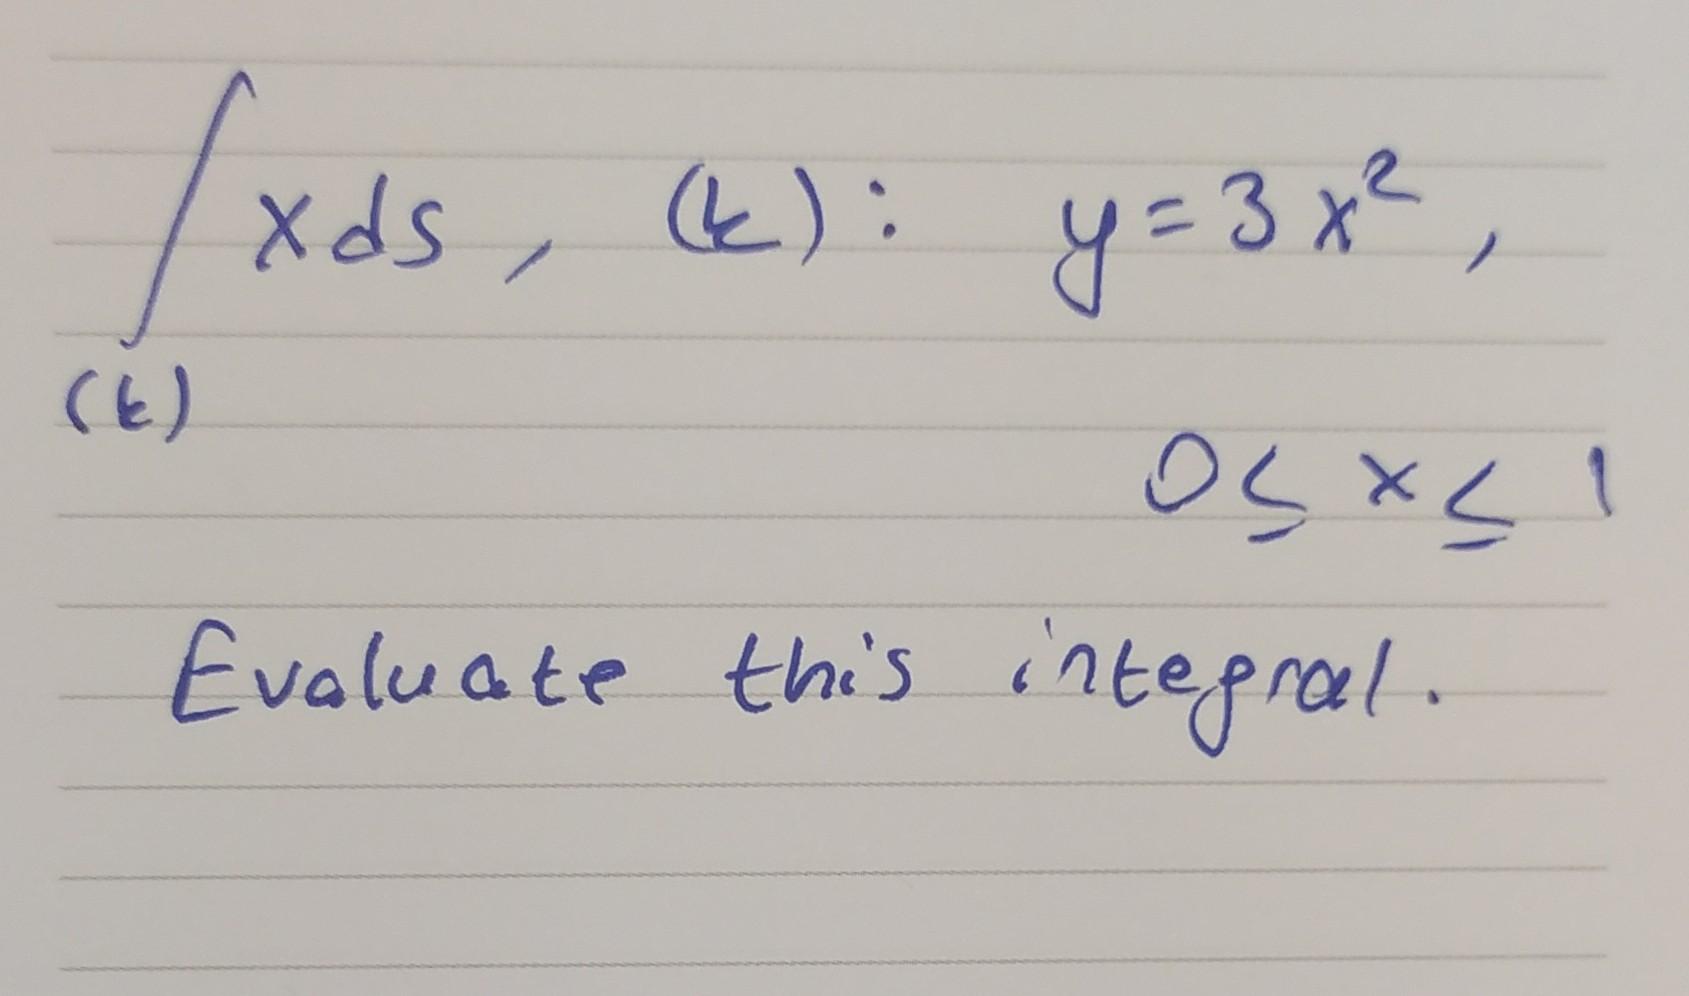 ∫ x ds, (k): y = 3x²,
(k)
0 ≤ x ≤ 1
Evaluate this integral.